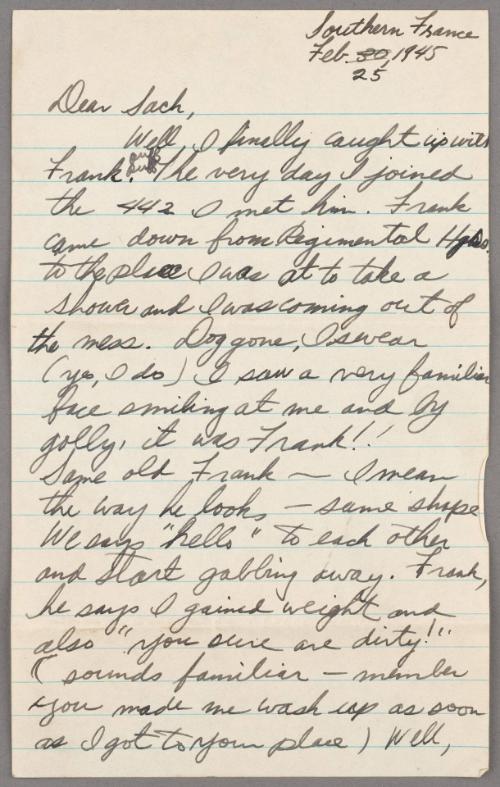 Southern France
Feb. 30, 1945
25
Dear Sach,
Well, I finally caught up with
Frank. The very day I joined
the 442 I met him. Frank
came down from Regimental Hqrs.
to the place I was at to take a
shower and I was coming out of
the mess. Doggone, I swear
(yes, I do) I saw a very familiar
face smiling at me and by
golly, it was Frank!!
Same old Frank — I mean
the way he looks, — same shape
We says "hello" to each other
and start gabbing away. Frank,
he says I gained weight and
also "you sure are dirty!"
(sounds familiar — member
you made me wash up as soon
as I got to your place) Well,